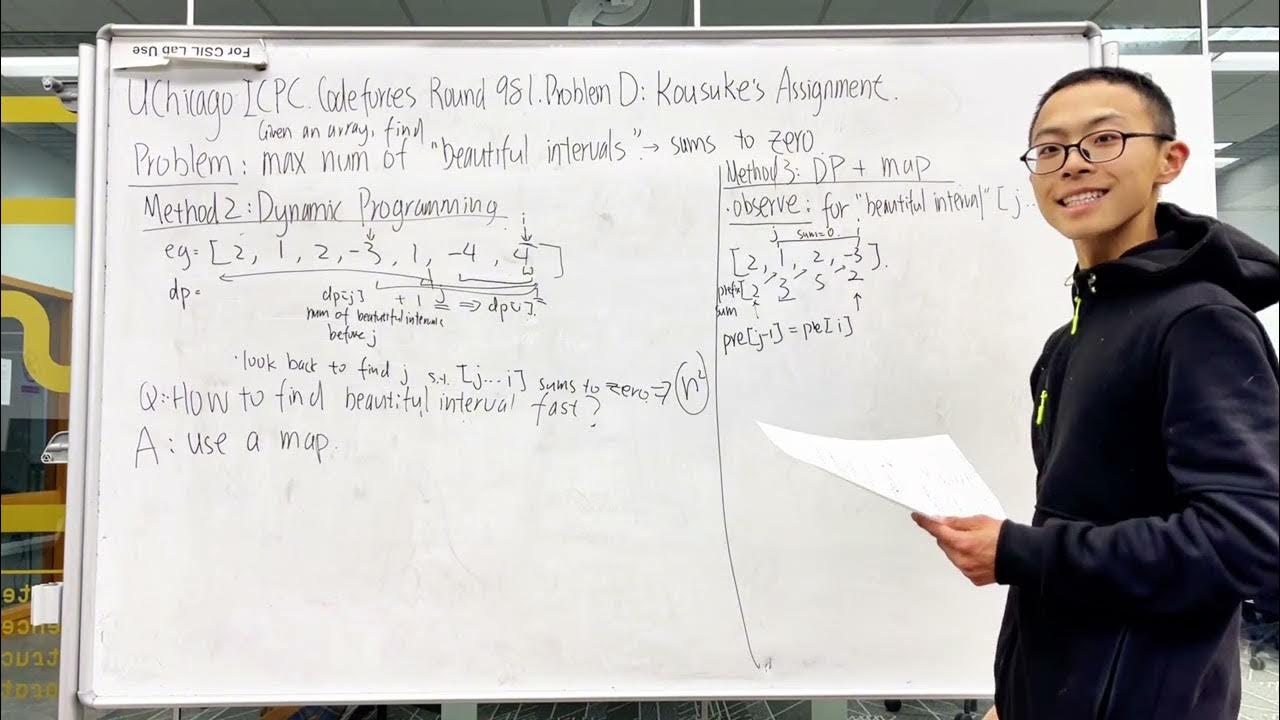 For CSIL Lab Use
UChicago ICPC. Codeforces Round 981. Problem D: Kousuke's Assignment.
Given an array, find
Problem: max num of "beautiful intervals". → sums to zero.
Method 2: Dynamic Programming
i
eg = [2, 1, 2, -3, 1, -4, 4]
dp =
j
dp[j] + 1 ⇒ dp[i].
num of beautiful intervals
before j
·look back to find j s.t. [j...i] sums to zero. ⇒ n²
Q: How to find beautiful interval fast?
A: use a map.
Method 3: DP + map
·observe: for "beautiful interval" [j..
j sum=0. i
[2, 1, 2, -3].
prefix [2 3 5 2
sum
pre[j-1] = pre[i]